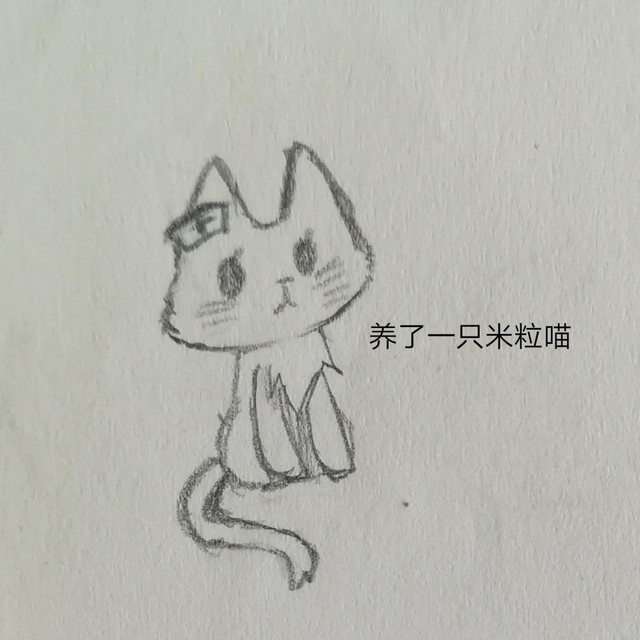 养了一只米粒喵